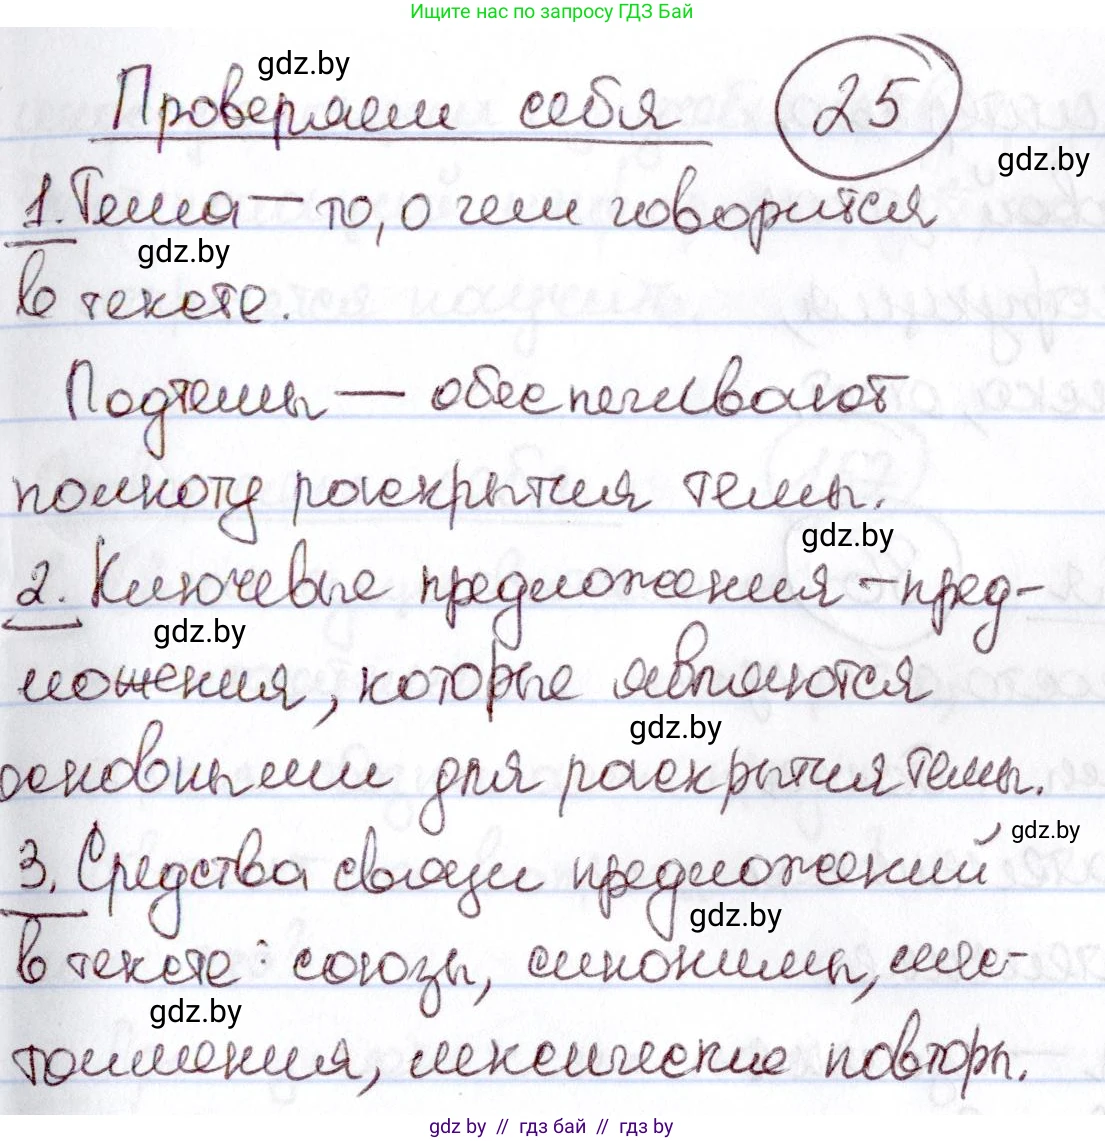 Ищите нас по запросу ГДЗ Бай
gdz.by
Проверяем себя 25
gdz.by
1. Тема — то, о чем говорится
gdz.by
в тексте.
Подтемы — обеспечивают
полноту раскрытия темы.
gdz.by
2. Ключевые предложения - пред-
gdz.by
ложения, которые являются
gdz.by
основными для раскрытия темы.
gdz.by
3. Средства связи предложений
gdz.by
в тексте: союзы, синонимы, мес-
gdz.by
тоимения, лексические повторы.
gdz by // гдз бай // гдз by